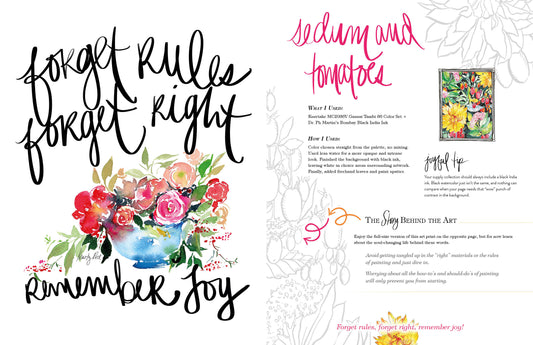 forget rules
forget right
remember joy
sedum and
tomatoes
What I Used:
How I Used:
Color chosen straight from the palette, no mixing.
Used less water for a more opaque and intense
look. Finished the background with black ink,
leaving white in choice areas surrounding artwork.
Finally, added freehand leaves and paint spatter.
joyful tip
Your supply collection should always include a black India
ink. Black watercolor just isn't the same, and nothing can
compare when your page needs that "wow" punch of
contrast in the background.
The Story Behind the Art
Enjoy the full-size version of this art print on the opposite page, but for now learn
about the soul-changing life behind these words.
Avoid getting tangled up in the "right" materials or the rules
of painting and just dive in.
Worrying about all the how-to's and should-do's of painting
will only prevent you from starting.
Forget rules, forget right, remember joy!